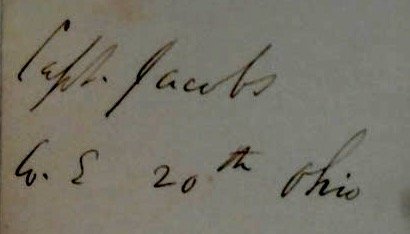 Capt. Jacobs
Co. E 20th Ohio